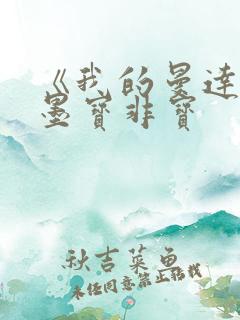 《我的曼达
墨宝非宝
秋吉菜鱼
未经同意禁止转载